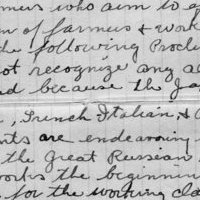 mers who aim to a
n of farmers & work
the following Procl
ot recognize any a
d because the Ja
, French Italian, &
nts are endeavoring
the Great Russian
works the beginnin
e for the working cla